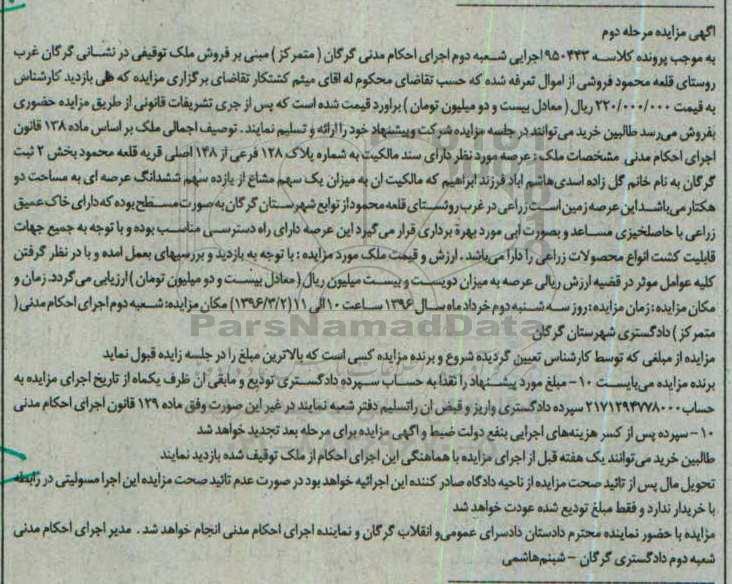 اگهی مزایده مرحله دوم
به موجب پرونده کلاسه ۹۵۰۴۴۳ اجرایی شعبه دوم اجرای احکام مدنی گرگان ( متمرکز ) مبنی بر فروش ملک توقیفی در نشانی گرگان غرب
روستای قلعه محمود فروشی از اموال تعرفه شده که حسب تقاضای محکوم له اقای میثم کشتکار تقاضای برگزاری مزایده که طی بازدید کارشناس
به قیمت ۲۲۰/۰۰۰/۰۰۰ ریال ( معادل بیست و دو میلیون تومان ) براورد قیمت شده است که پس از جری تشریفات قانونی از طریق مزایده حضوری
بفروش می‌رسد طالبین خرید می‌توانند در جلسه مزایده شرکت و پیشنهاد خود را ارائه و تسلیم نمایند . توصیف اجمالی ملک بر اساس ماده ۱۳۸ قانون
اجرای احکام مدنی مشخصات ملک : عرصه مورد نظر دارای سند مالکیت به شماره پلاک ۱۲۸ فرعی از ۱۴۸ اصلی قریه قلعه محمود بخش ۲ ثبت
گرگان به نام خانم گل زاده اسدی هاشم اباد فرزند ابراهیم که مالکیت ان به میزان یک سهم مشاع از یازده سهم ششدانگ عرصه ای به مساحت دو
هکتار می‌باشد این عرصه زمین است زراعی در غرب روستای قلعه محمود از توابع شهرستان گرگان به صورت مسطح بوده که دارای خاک عمیق
زراعی با حاصلخیزی مساعد و بصورت آبی مورد بهره برداری قرار می‌گیرد این عرصه دارای راه دسترسی مناسب بوده و با توجه به جمیع جهات
قابلیت کشت انواع محصولات زراعی را دارا می‌باشد . ارزش و قیمت ملک مورد مزایده : با توجه به بازدید و بررسیهای بعمل امده و با در نظر گرفتن
کلیه عوامل موثر در قضیه ارزش ریالی عرصه به میزان دویست و بیست میلیون ریال ( معادل بیست و دو میلیون تومان ) ارزیابی می‌گردد. زمان و
مکان مزایده : زمان مزایده : روز سه شنبه دوم خرداد ماه سال ۱۳۹۶ ساعت ۱۰ الی ۱۱ (۱۳۹۶/۳/۲) مکان مزایده: شعبه دوم اجرای احکام مدنی (
متمرکز ) دادگستری شهرستان گرگان
ParsNamadData
مزایده از مبلغی که توسط کارشناس تعیین گردیده شروع و برنده مزایده کسی است که بالاترین مبلغ را در جلسه زایده قبول نماید
برنده مزایده می‌بایست ۱۰- مبلغ مورد پیشنهاد را نقدا به حساب سپرده دادگستری تودیع و مابقی ان ظرف یکماه از تاریخ اجرای مزایده به
حساب ۲۱۷۱۲۹۴۷۷۸۰۰۰ سپرده دادگستری واریز و قبض ان راتسلیم دفتر شعبه نمایند در غیر این صورت وفق ماده ۱۲۹ قانون اجرای احکام مدنی
۱۰- سپرده پس از کسر هزینه‌های اجرایی بنفع دولت ضبط و اگهی مزایده برای مرحله بعد تجدید خواهد شد
طالبین خرید می‌توانند یک هفته قبل از اجرای مزایده با هماهنگی این اجرای احکام از ملک توقیف شده بازدید نمایند
تحویل مال پس از تائید صحت مزایده از ناحیه دادگاه صادر کننده این اجرائیه خواهد بود در صورت عدم تائید صحت مزایده این اجرا مسولیتی در رابطه
با خریدار ندارد و فقط مبلغ تودیع شده عودت خواهد شد
مزایده با حضور نماینده محترم دادستان دادسرای عمومی و انقلاب گرگان و نماینده اجرای احکام مدنی انجام خواهد شد . مدیر اجرای احکام مدنی
شعبه دوم دادگستری گرگان - شبنم هاشمی